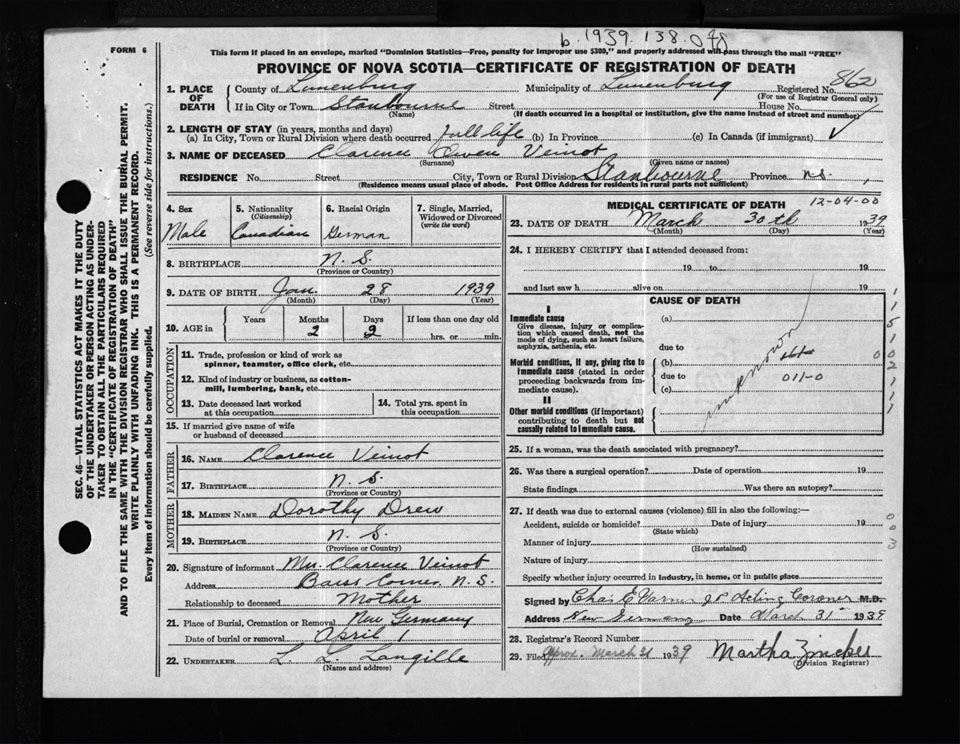 FORM 6
b. 1939. 138.
This form if placed in an envelope, marked "Dominion Statistics—Free, penalty for improper use $300," and properly addressed will pass through the mail "FREE"
PROVINCE OF NOVA SCOTIA—CERTIFICATE OF REGISTRATION OF DEATH
862
1. PLACE OF DEATH
County of Lunenburg Municipality of Lunenburg Registered No.
(For use of Registrar General only)
If in City or Town Stanbourne Street House No.
(Name) (If death occurred in a hospital or institution, give the name instead of street and number)
2. LENGTH OF STAY (in years, months and days)
(a) In City, Town or Rural Division where death occurred full life (b) In Province (c) In Canada (if immigrant) ✓
3. NAME OF DECEASED Clarence Owen Veinot
(Surname) (Given name or names)
RESIDENCE No. Street City, Town or Rural Division Stanbourne Province N.S.
(Residence means usual place of abode. Post Office Address for residents in rural parts not sufficient)
SEC. 46—VITAL STATISTICS ACT MAKES IT THE DUTY
OF THE UNDERTAKER OR PERSON ACTING AS UNDER-
TAKER TO OBTAIN ALL THE PARTICULARS REQUIRED
IN THE "CERTIFICATE OF REGISTRATION OF DEATH"
AND TO FILE THE SAME WITH THE DIVISION REGISTRAR WHO SHALL ISSUE THE BURIAL PERMIT.
WRITE PLAINLY WITH UNFADING INK. THIS IS A PERMANENT RECORD.
Every item of information should be carefully supplied. (See reverse side for instructions.)
4. Sex
Male
5. Nationality
(Citizenship)
Canadian
6. Racial Origin
German
7. Single, Married,
Widowed or Divorced
(write the word)
8. BIRTHPLACE N. S.
(Province or Country)
9. DATE OF BIRTH Jan. 28 1939
(Month) (Day) (Year)
10. AGE in
Years Months Days If less than one day old
2 2 hrs. or min.
OCCUPATION
11. Trade, profession or kind of work as
spinner, teamster, office clerk, etc.
12. Kind of industry or business, as cotton-
mill, lumbering, bank, etc.
13. Date deceased last worked
at this occupation
14. Total yrs. spent in
this occupation
15. If married give name of wife
or husband of deceased
FATHER
16. NAME Clarence Veinot
17. BIRTHPLACE N. S.
(Province or Country)
MOTHER
18. MAIDEN NAME Dorothy Drew
19. BIRTHPLACE N. S.
(Province or Country)
20. Signature of informant Mrs. Clarence Veinot
Address Corner N. S.
Relationship to deceased Mother
21. Place of Burial, Cremation or Removal New Germany
Date of burial or removal April 1
22. UNDERTAKER L. L. Langille
(Name and address)
MEDICAL CERTIFICATE OF DEATH
12-04-00
23. DATE OF DEATH March 30th 1939
(Month) (Day) (Year)
24. I HEREBY CERTIFY that I attended deceased from:
19 to 19
and last saw h alive on 19
CAUSE OF DEATH
I
Immediate cause
Give disease, injury or complica-
tion which caused death, not the
mode of dying, such as heart failure,
asphyxia, asthenia, etc.
(a)
due to
Morbid conditions, if any, giving rise to
immediate cause (stated in order
proceeding backwards from im-
mediate cause).
(b)
due to
(c)
unknown
011-0
II
Other morbid conditions (if important)
contributing to death but not
causally related to immediate cause.
25. If a woman, was the death associated with pregnancy?
26. Was there a surgical operation? Date of operation 19
State findings Was there an autopsy?
27. If death was due to external causes (violence) fill in also the following:—
Accident, suicide or homicide? Date of injury 19
(State which)
Manner of injury
(How sustained)
Nature of injury
Specify whether injury occurred in industry, in home, or in public place
Signed by Chas E Varner J P Acting Coroner M.D.
Address New Germany Date March 31st 1939
28. Registrar's Record Number
29. Filed Approx. March 31 1939 Martha Zinckel
(Division Registrar)